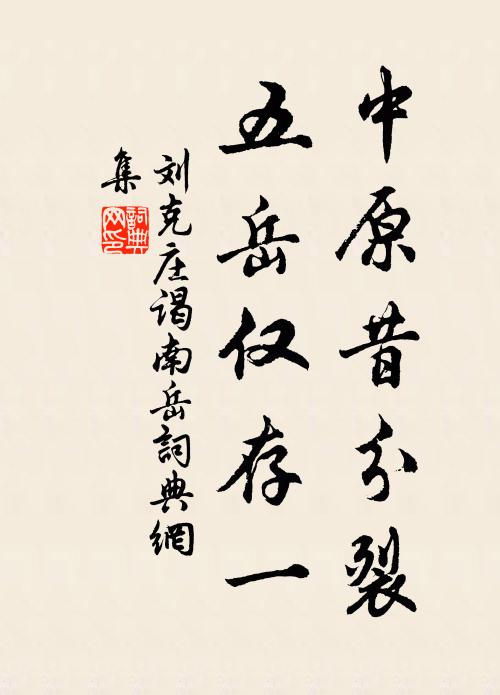 中原昔分裂
五岳仅存一
刘克庄谒南岳詞典網
集
詞典网印